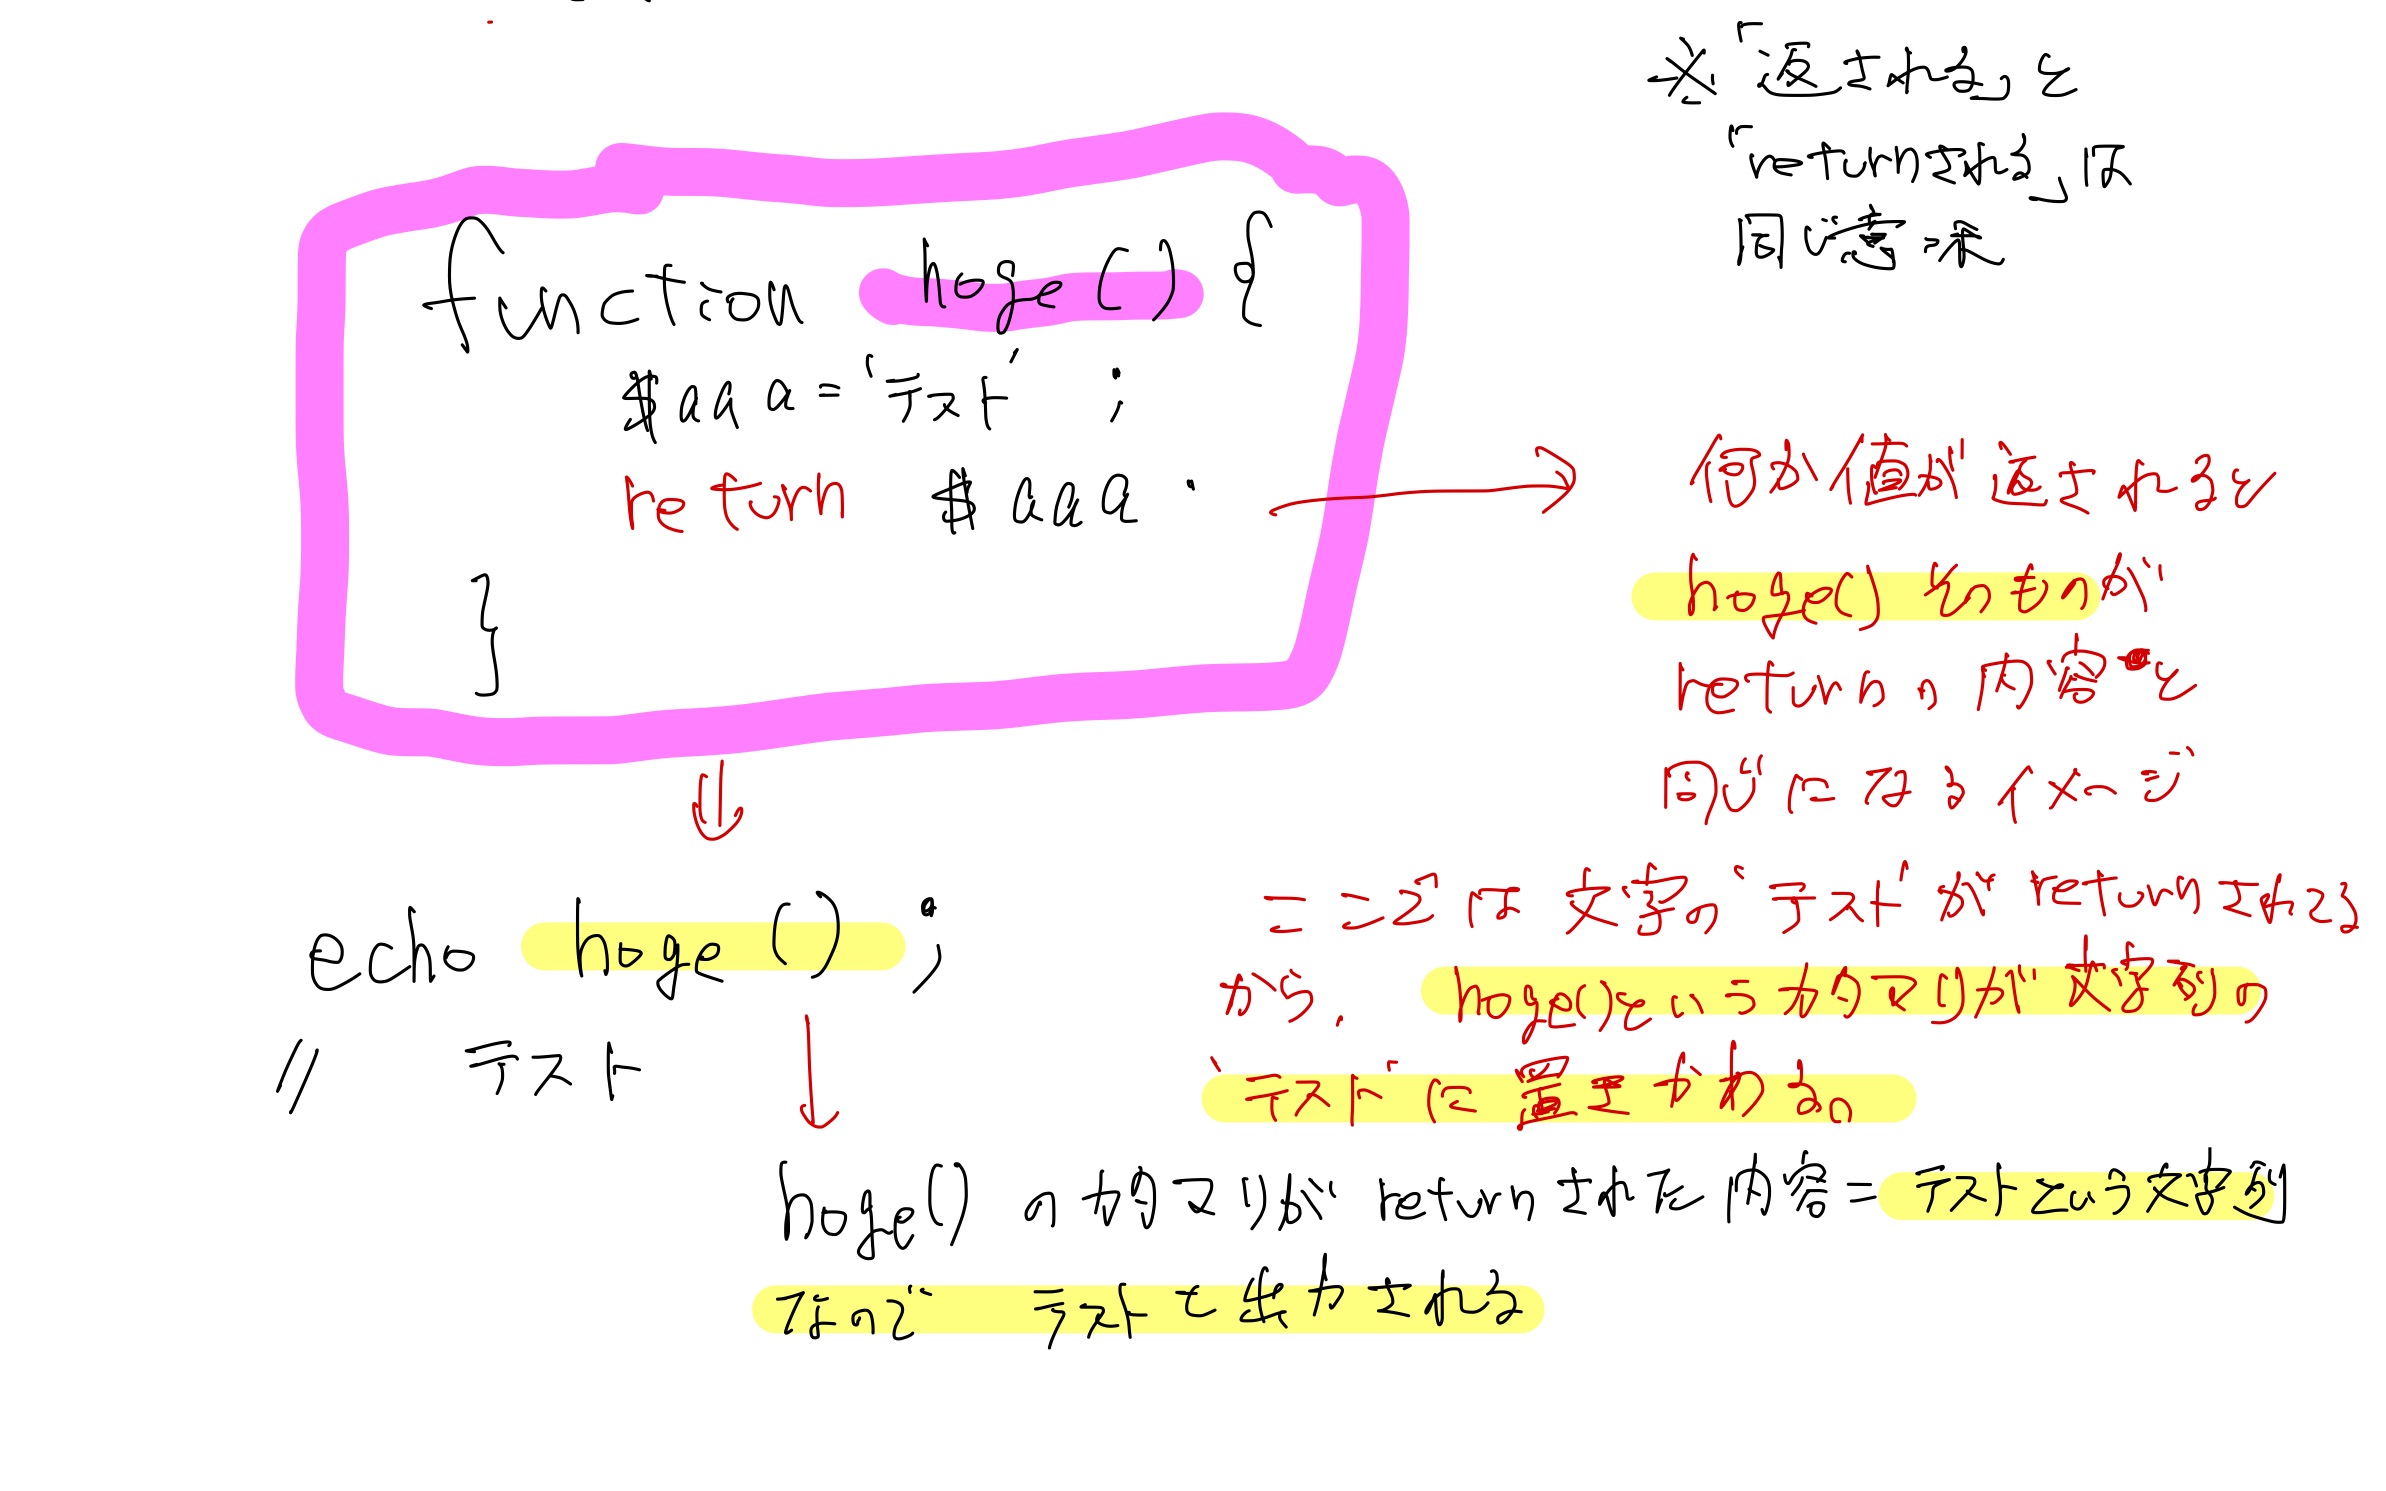 ※「返される」と
「returnされる」は
同じ意味
function hoge() {
$aaa = 'テスト' ;
return $aaa .
}
何か値が返されると
hoge() そのものが
returnの内容と
同じになるイメージ
ここでは文字の'テスト'がreturnされてる
から、hoge()というカタマリが文字列の
'テスト'に置きかわる。
echo hoge() ;
// テスト
hoge() のカタマリがreturnされた内容=テストという文字列
なので テストと出力される